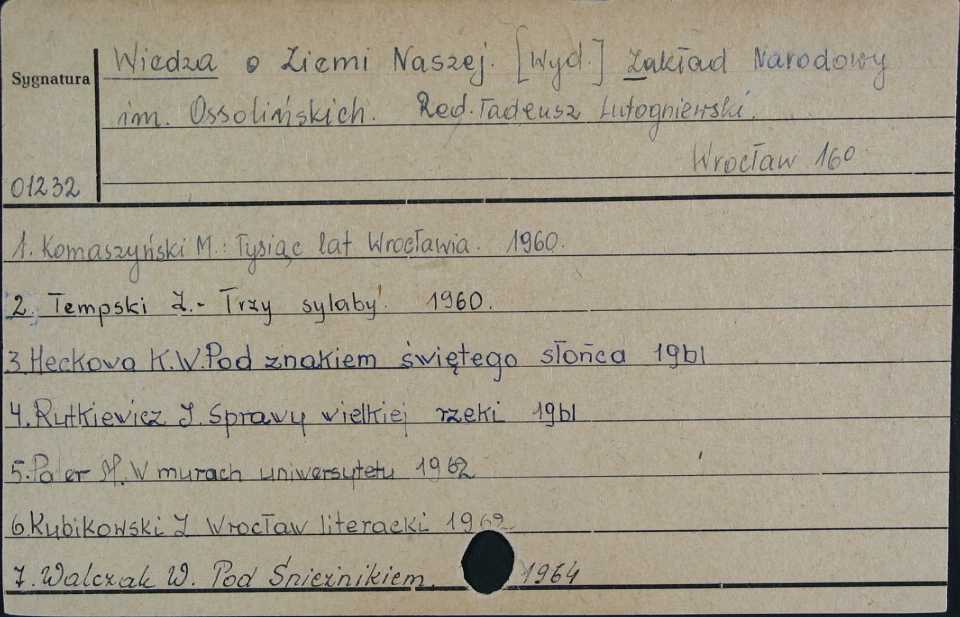 Wiedza o Ziemi Naszej. [Wyd.] Zakład Narodowy
Sygnatura
im. Ossolińskich. Red. Tadeusz Lutogniewski.
Wrocław 160
01232
1. Komaszyński M.: Tysiąc lat Wrocławia. 1960.
2. Tempski Z. - Trzy sylaby. 1960.
3. Heckova K.W. Pod znakiem świętego słońca 1961
4. Rutkiewicz J. Sprawy wielkiej rzeki 1961
5. Pater M. W murach uniwersytetu 1962
6. Kubikowski Z Wrocław literacki 1962.
7. Walczak W. Pod Śnieżnikiem. 1964